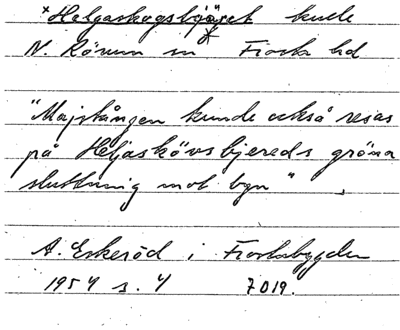 *Helgaskogsbjäret kulle
N. Rörum sn * Frosta hd
"Majstången kunde också resas
på Heljaskövsbjereds gröna
sluttning mot byn"
A. Eskeröd i Frostabygden
1954 s. 4 7019.